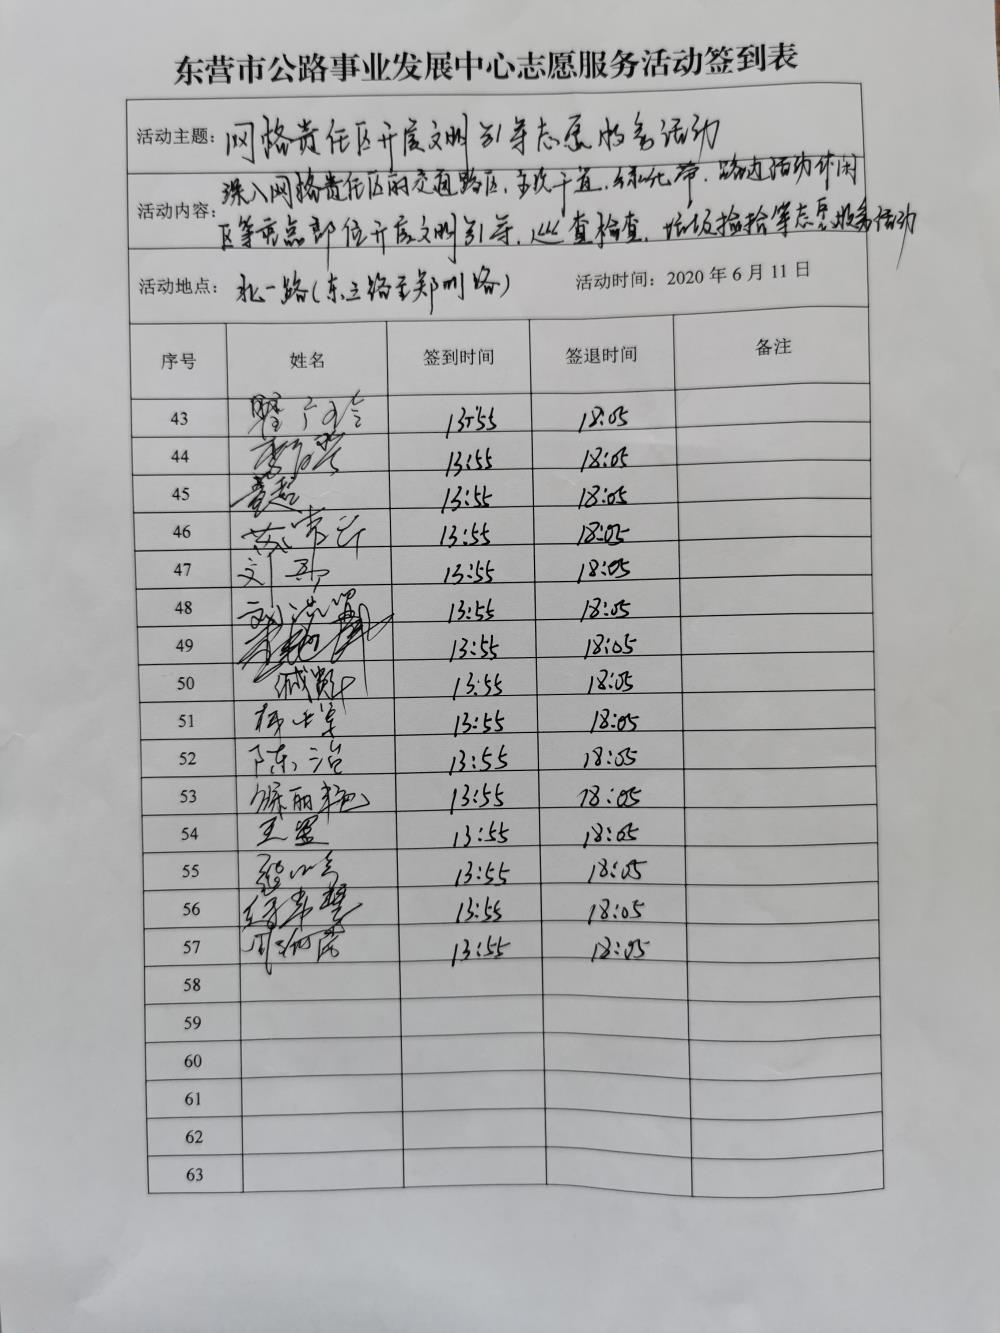 东营市公路事业发展中心志愿服务活动签到表
活动主题：网格责任区开展文明引导志愿服务活动
活动内容：深入网格责任区的交通路区，主次干道，绿化带，路边活动休闲
区等重点部位开展文明引导，巡查检查，垃圾捡拾等志愿服务活动
活动地点：北一路（东三路至郑州路） 活动时间：2020年6月11日
序号 姓名 签到时间 签退时间 备注
43 13:55 18:05
44 13:55 18:05
45 13:55 18:05
46 13:55 18:05
47 13:55 18:05
48 13:55 18:05
49 13:55 18:05
50 13:55 18:05
51 13:55 18:05
52 陈治 13:55 18:05
53 13:55 18:05
54 13:55 18:05
55 13:55 18:05
56 13:55 18:05
57 13:55 18:05
58
59
60
61
62
63